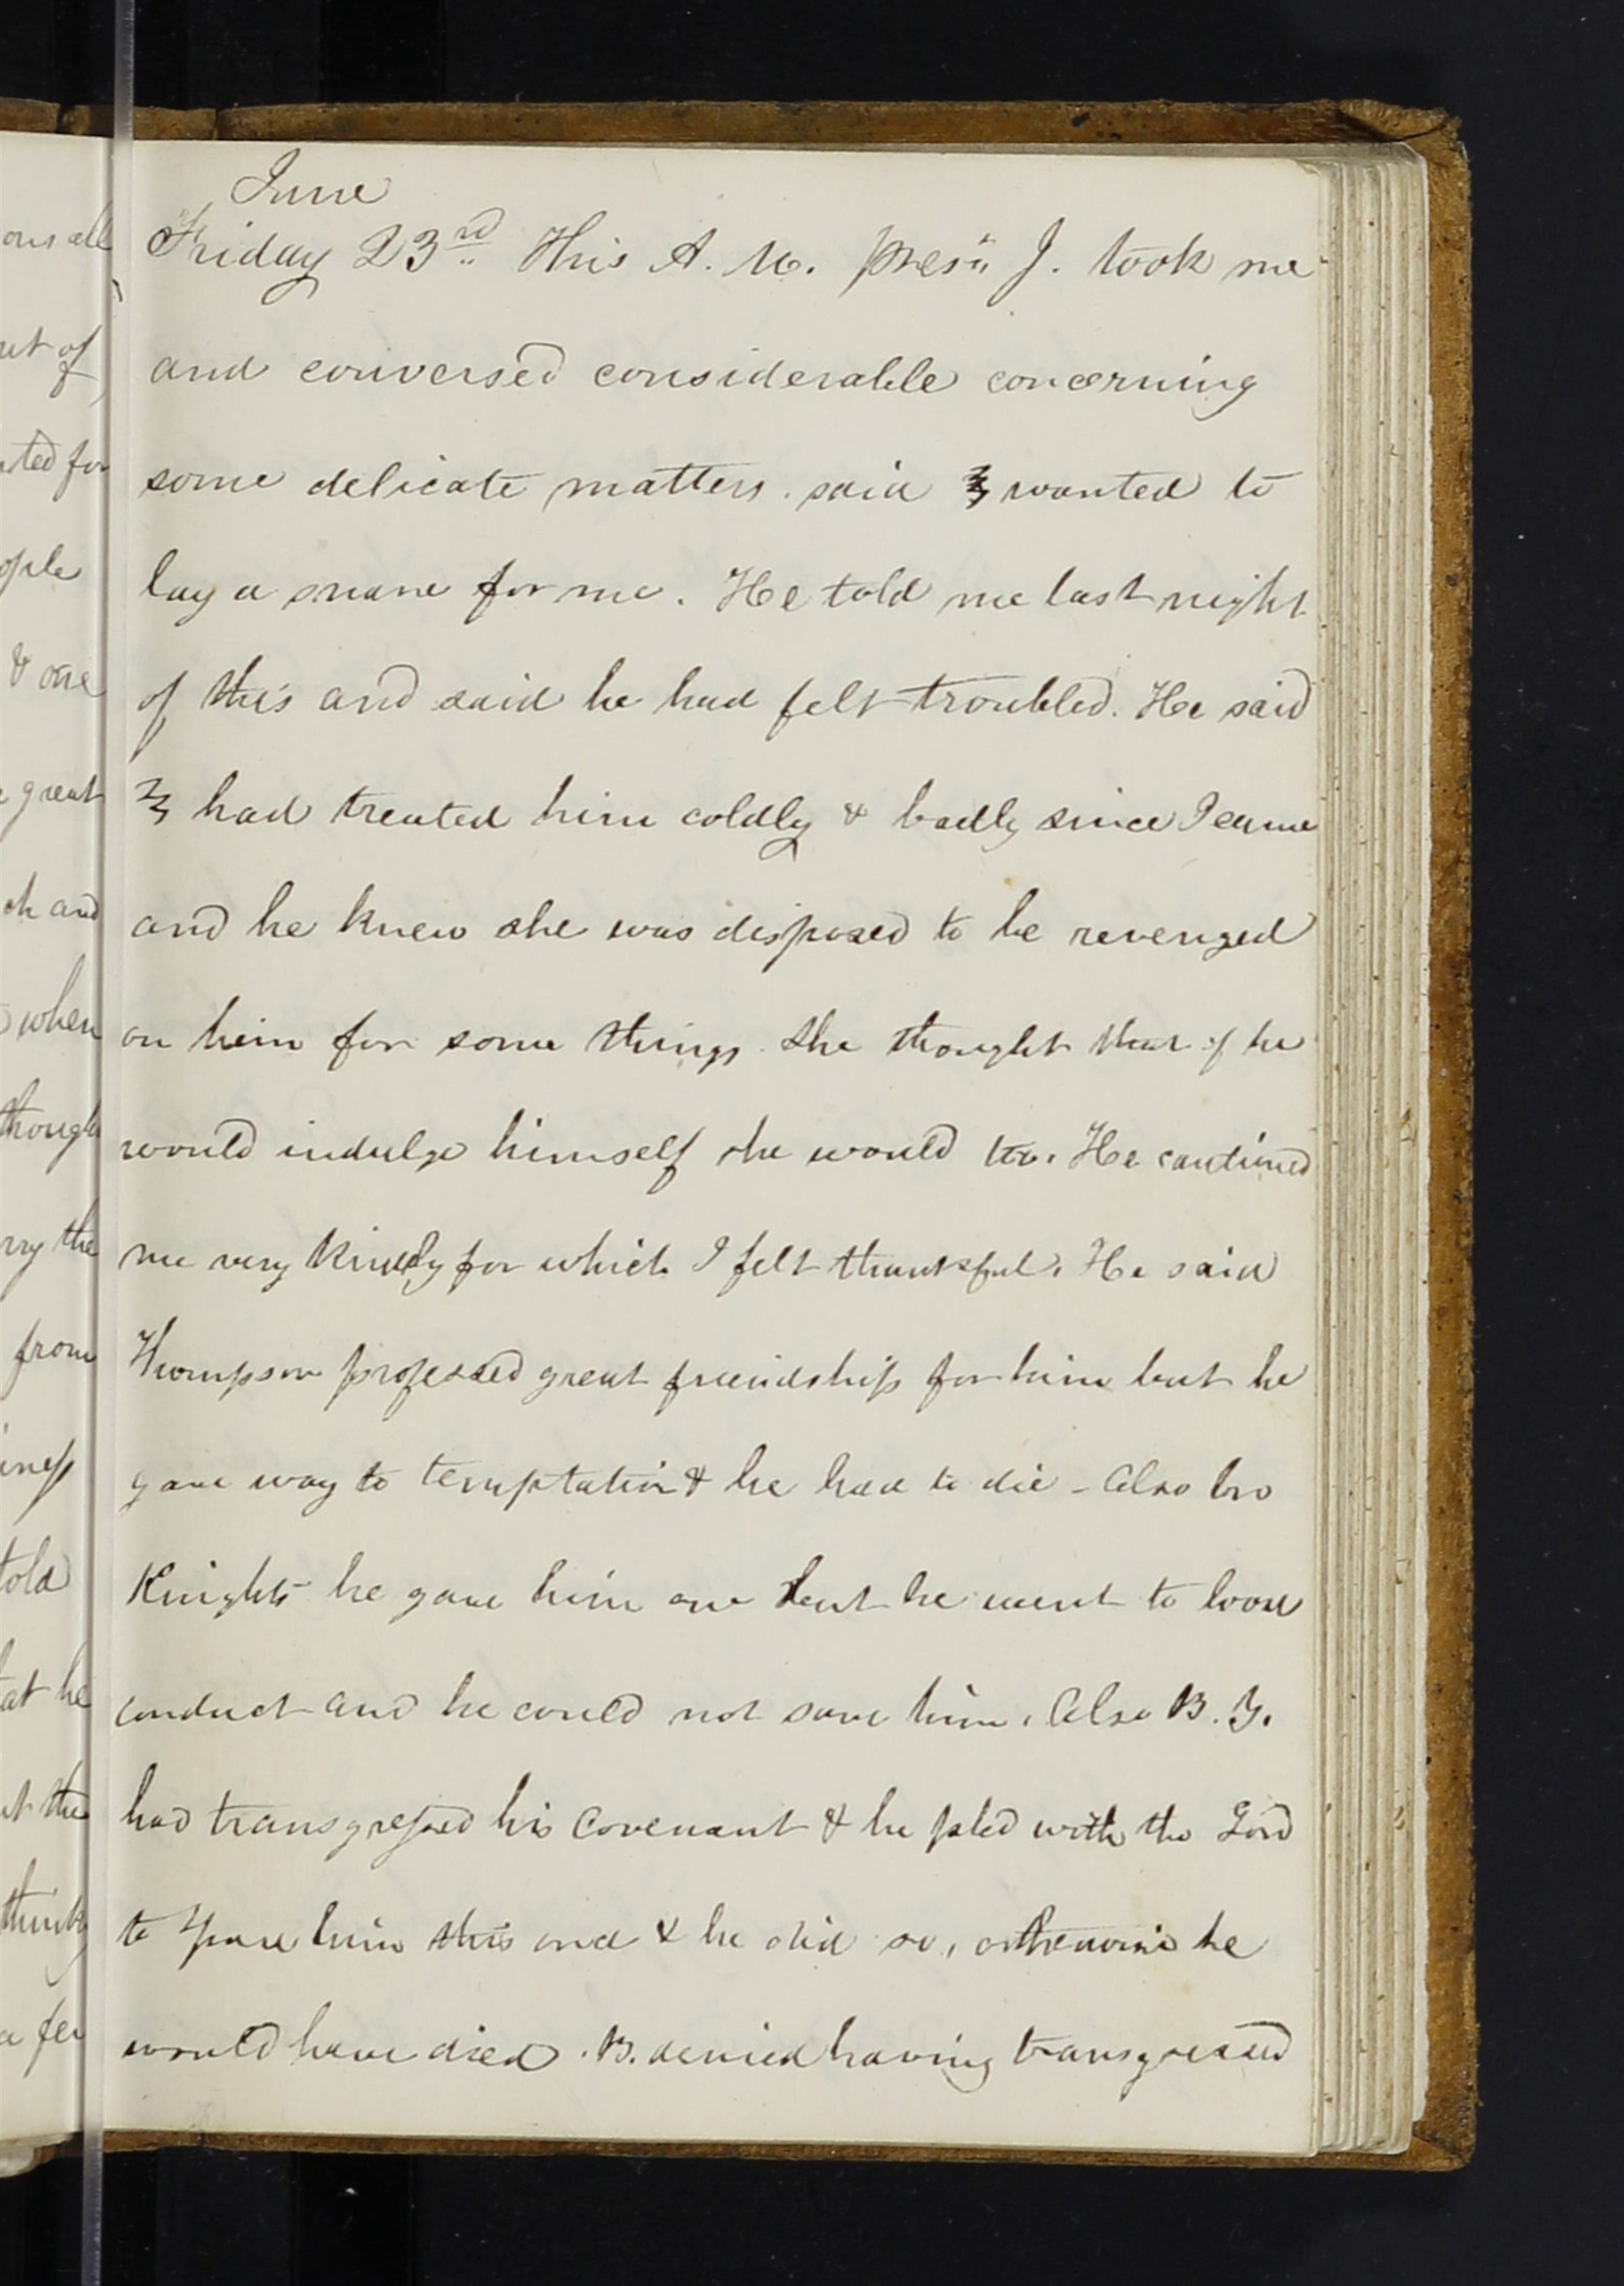 June
Friday 23rd This A. M. Prest. J. took me
and conversed considerable concerning
some delicate matters. said wanted to
lay a snare for me. He told me last night
of this and said he had felt troubled. He said
had treated him coldly & badly since I came
and he knew she was disposed to be revenged
on him for some things she thought that if he
would indulge himself she would too. He cautioned
me very kindly for which I felt thankful. He said
Thompson professed great friendship for him but he
gave way to temptation & he had to die - Also bro
Knights he gave him one but he went to loose
conduct and he could not save him. Also B. Y.
had transgressed his covenant & he pled with the Lord
to spare him this end & he did so, otherwise he
would have died. B. denied having transgressed
ons all
ut of
ted for
ople
& one
great
ch and
when
though
rry the
from
iness
told
at he
ut the
think
a few